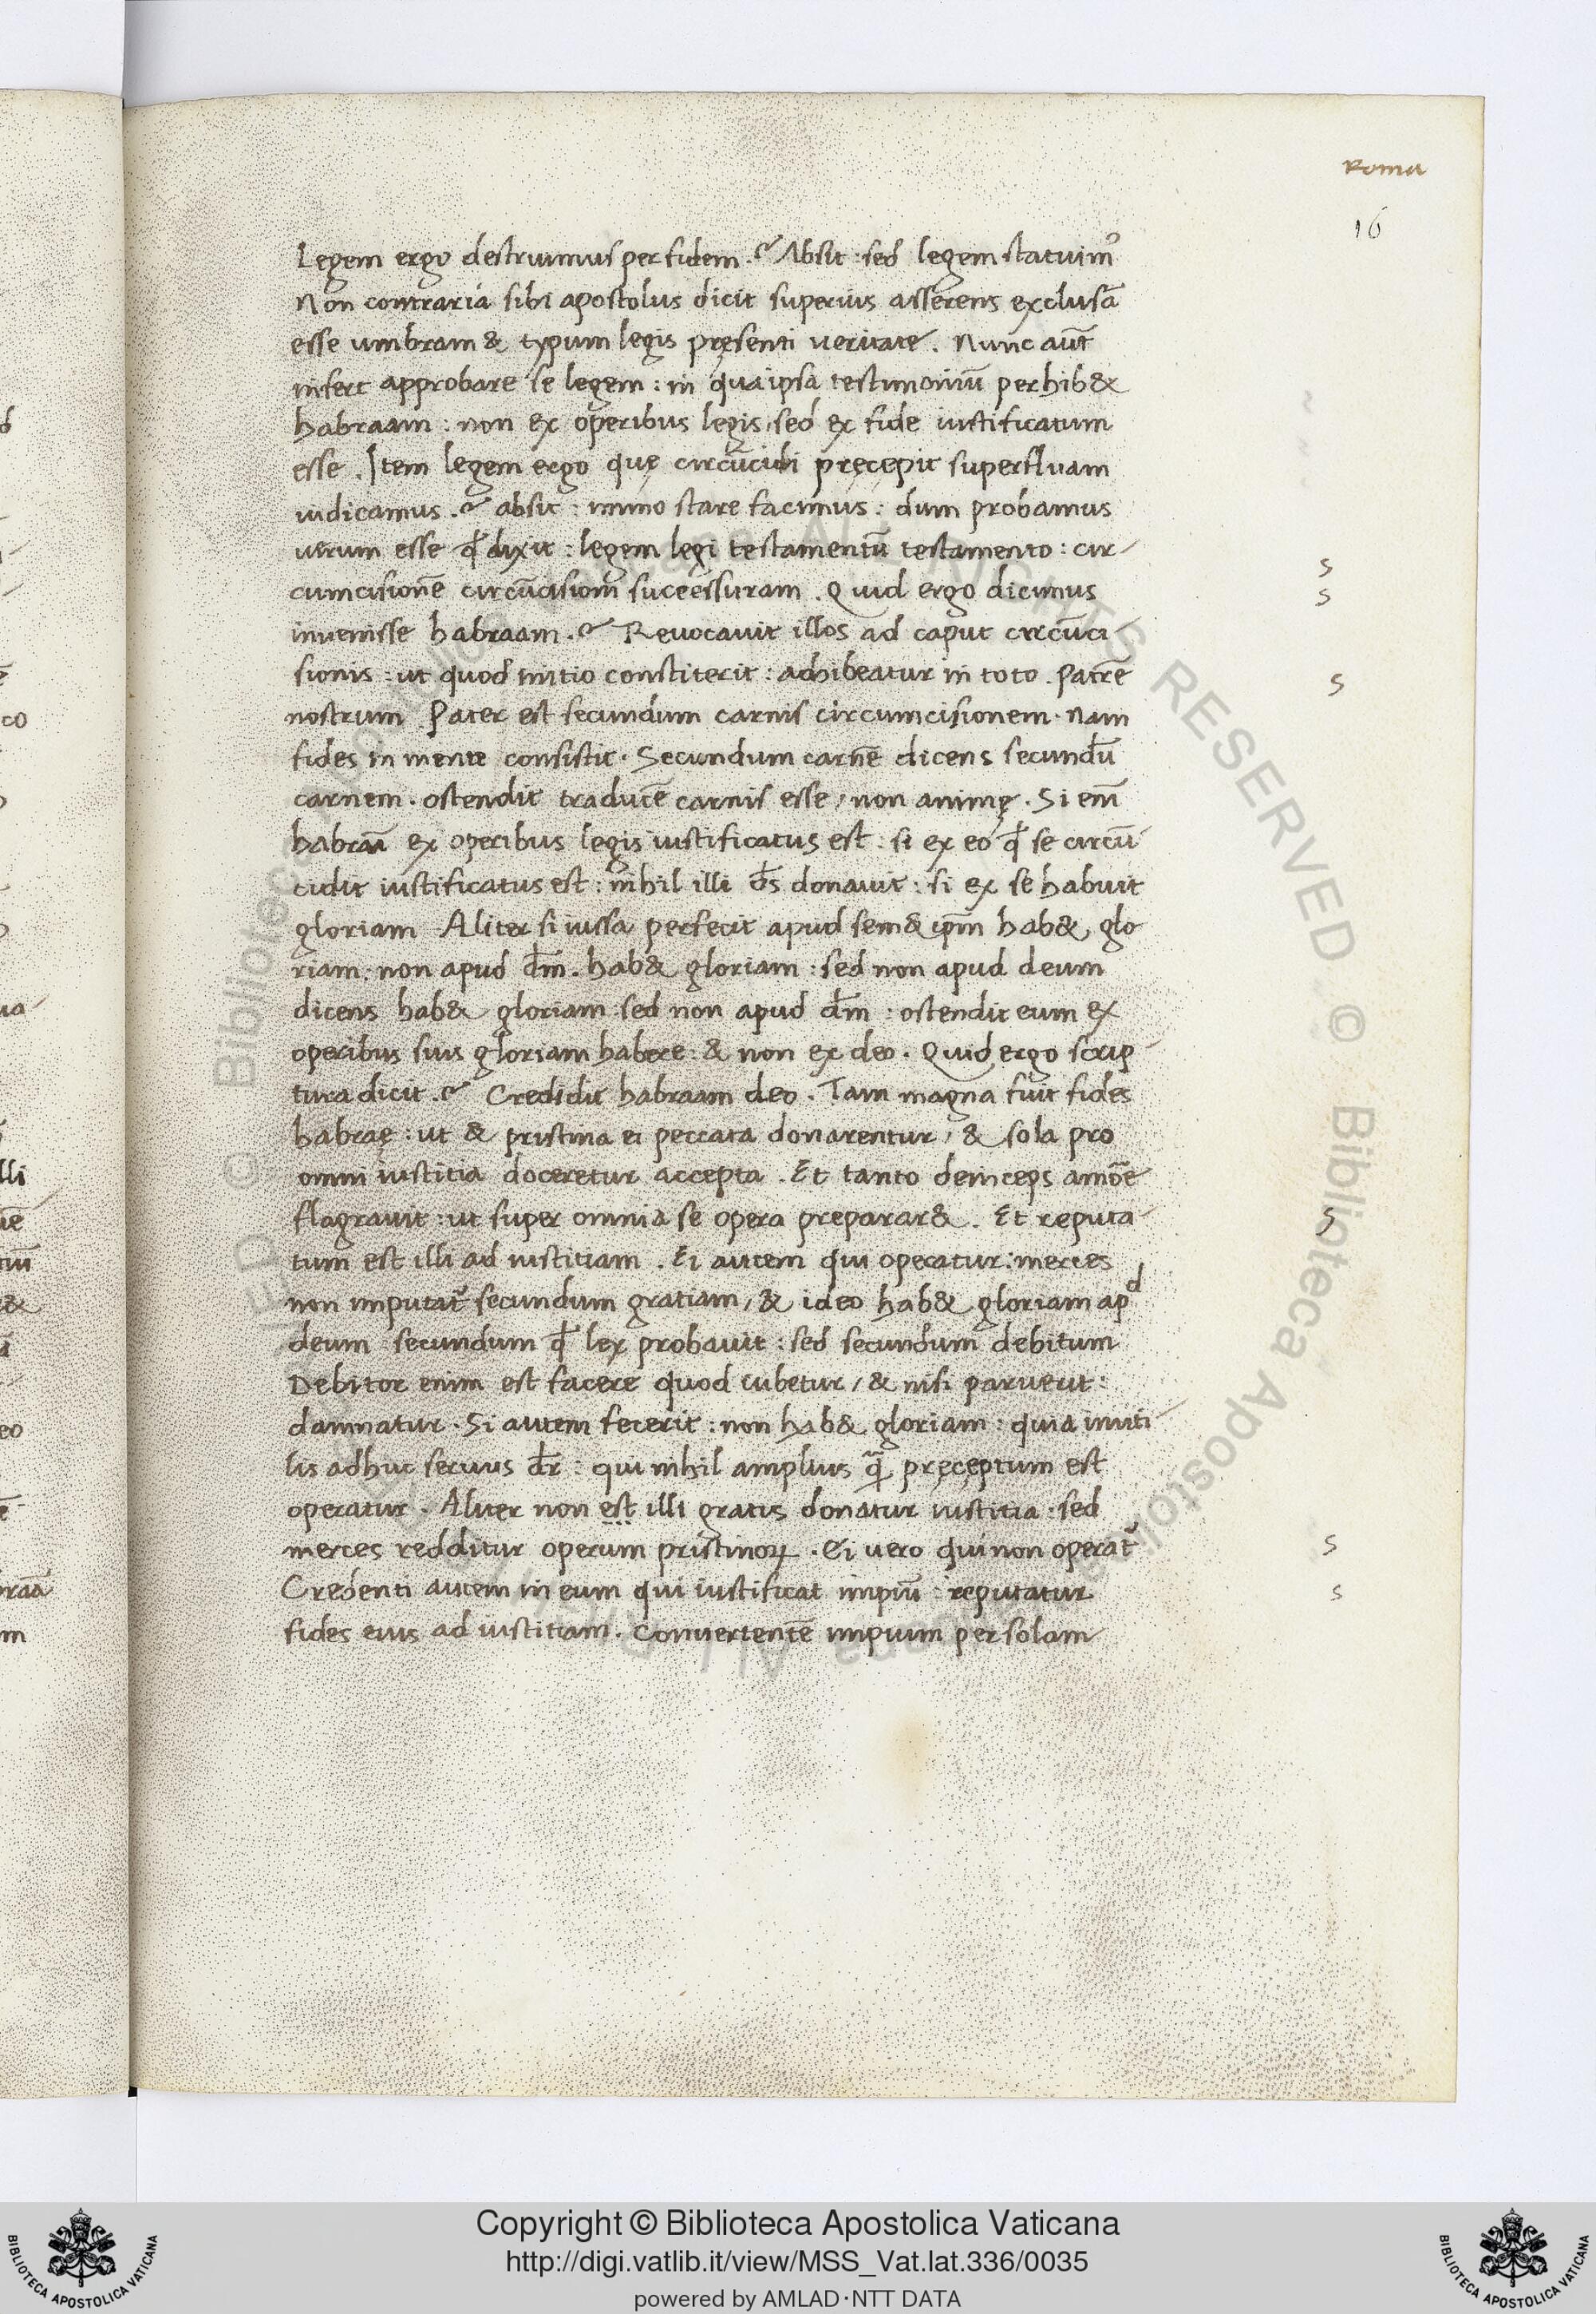 Roma
16
Legem ergo destruimus per fidem.? Absit: sed legem statuimꝰ
Non contraria sibi apostolus dicit superius asserens exclusā
esse umbram & typum legis pręsenti ueritate. Nunc aūt
infert approbare se legem: in qua ipsa testimoniū perhib&
habraam: non ex operibus legis, sed ex fide iustificatum
esse. Item legem ergo quę circūcidi pręcępit superfluam
iudicamus.? absit: immo stare facimus: dum probamus
uerum esse qđ dixit: legem legi testamentū testamento: cir-
cumcisionē circūcisioni successuram. Quid ergo dicimus
inuenisse habraam.? Reuocauit illos ad caput circūci-
sionis: ut quod initio constiterit: adhibeatur in toto. Patrē
nostrum Pater est secundum carnis circumcisionem. nam
fides in mente consistit. Secundum carnē dicens secundū
carnem. ostendit traducē carnis esse, non animę. Si em̄
habraā ex operibus legis iustificatus est: si ex eo qđ se circū-
cidit iustificatus est: nihil illi ds̄ donauit: si ex se habuit
gloriam Aliter si iussa perfecit apud sem& ipm̄ hab& glo
riam: non apud dm̄. hab& gloriam: sed non apud deum
dicens hab& gloriam: sed non apud dm̄: ostendit eum ex
operibus suis gloriam habere: & non ex deo. Quid ergo scrip-
tura dicit.? Credidit habraam deo. Tam magna fuit fides
habraę: ut & pristina ei peccata donarentur, & sola pro
omni iustitia doceretur accepta. Et tanto deinceps amōe
flagrauit: ut super omnia se opera preparar&. Et reputa-
tum est illi ad iustitiam. Ei autem qui operatur: merces
non imputat᷑ secundum gratiam, & ideo hab& gloriam apᵈ
deum secundum qđ lex probauit: sed secundum debitum
Debitor enim est facere quod iubetur, & nisi paruerit:
damnatur. Si autem fecerit: non hab& gloriam: quia inuti-
lis adhuc seruus dr̄: qui nihil amplius q̄ pręcęptum est
operatur. Aliter non est illi gratis donatur iustitia: sed
merces redditur operum pristinoꝝ. Ei uero qui non operat᷑
Credenti autem in eum qui iustificat impiū: reputatur
fides eius ad iustitiam. Conuertentē impium per solam
s
s
s
s
s
s
Copyright © Biblioteca Apostolica Vaticana
http://digi.vatlib.it/view/MSS_Vat.lat.336/0035
powered by AMLAD·NTT DATA
BIBLIOTECA APOSTOLICA VATICANA
BIBLIOTECA APOSTOLICA VATICANA